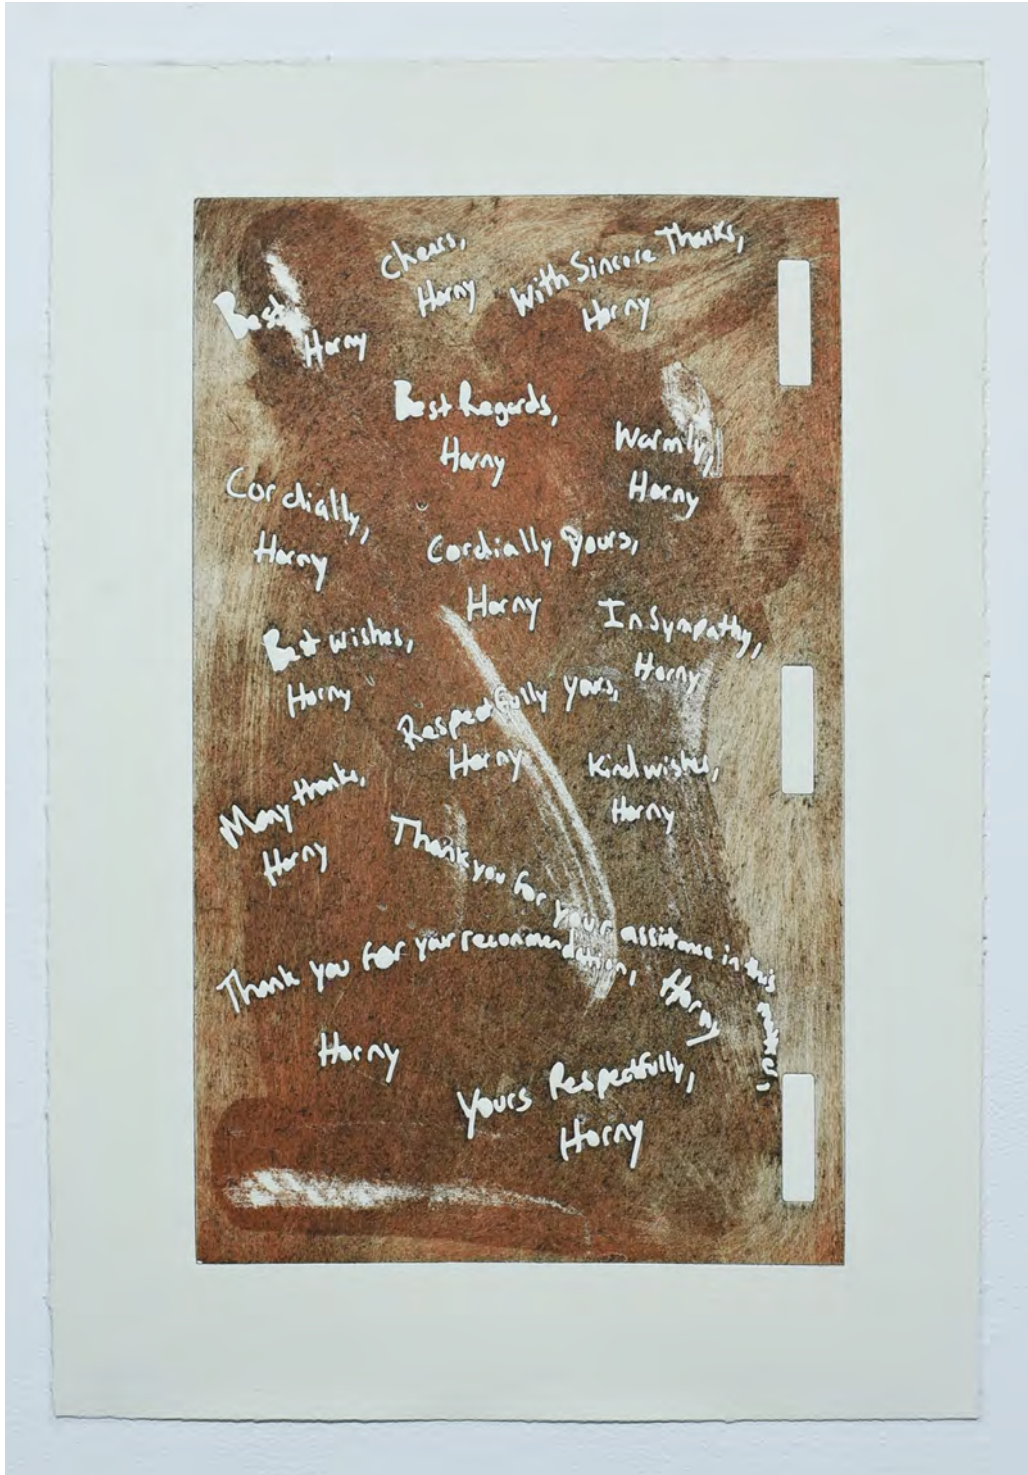 Best
Horny
Cheers,
Horny
With Sincere Thanks,
Horny
Best Regards,
Horny
Warmly,
Horny
Cordially,
Horny
Cordially Yours,
Horny
Best wishes,
Horny
In Sympathy,
Horny
Respectfully yours,
Horny
Kind wishes,
Horny
Many thanks,
Horny
Thank you for your assistance in this matter,
Horny
Thank you for your recommendation,
Horny
Yours Respectfully,
Horny